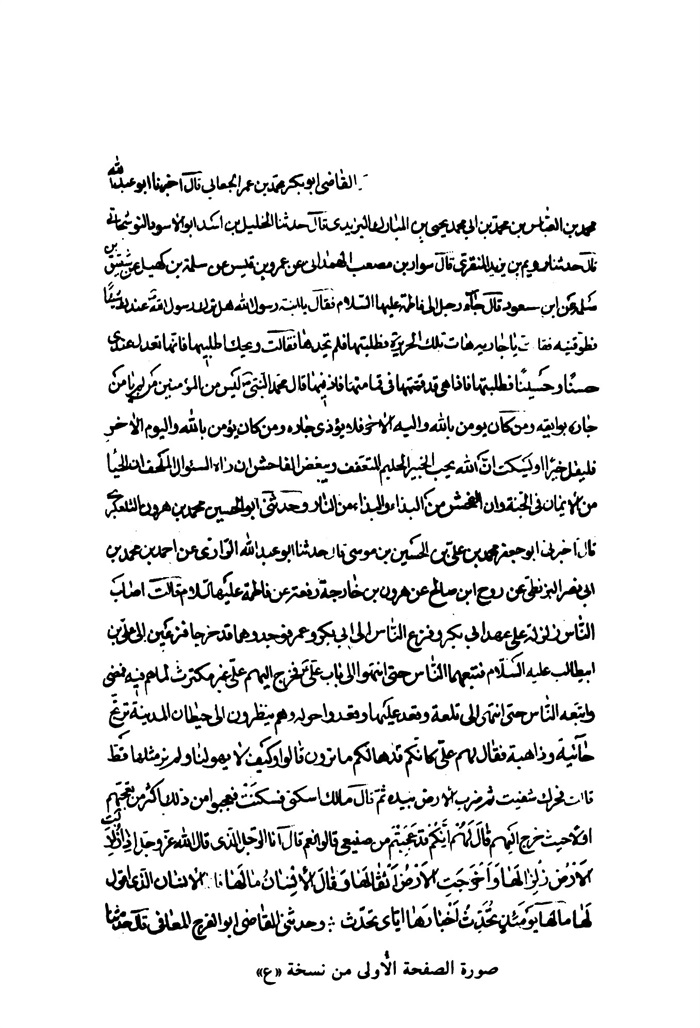 القاضي ابو بكر محمد بن عمر الجعابي قال اخبرنا ابو عبدالله
محمد بن العباس بن محمد بن ابي محمد يحيى بن المبارك اليزيدي قال حدثنا الخليل بن اسد ابو الاسود النوشجاني
قال حدثنا رويم بن يزيد المنقري قال سوار بن مصعب الهمداني عن عمرو بن قيس عن سلمة بن كهيل عن شقيق بن
سلمة عن ابن مسعود قال جاء رجل الى فاطمة عليها السلام فقال يا ابنة رسول الله هل ترك رسول الله عندك شيئا
فطوقنيه فقالت يا جارية هات تلك الجريدة فطلبتها فلم تجدها فقالت ويحك اطلبيها فانها تعدل عندي
حسنا وحسينا فطلبتها فاذا هي قد قمتها في قمامتها فاذا فيها قال محمد النبي ليس من المؤمنين من لم يامن
جاره بوايقه ومن كان يومن بالله واليوم الاخر فلا يؤذي جاره ومن كان يؤمن بالله واليوم الاخر
فليقل خيرا او ليسكت ان الله يحب الخير الحليم المتعفف ويبغض الفاحش السئوال الملحف ان الحيا
من الايمان في الجنة وان الفحش من البذاء والبذاء من النار وحدثني ابو الحسين محمد بن هرون التلعكبري
قال اخبرني ابو جعفر محمد بن علي بن الحسين بن موسى قال حدثنا ابو عبدالله الرازي عن احمد بن محمد بن
ابي نصر البزنطي عن روح ابن صالح عن هرون بن خارجة رفعه عن فاطمة عليها السلام قالت اصاب
الناس زلزلة على عهد ابي بكر وفزع الناس الى ابي بكر وعمر فوجدوهما قد خرجا فزعين الى علي بن
ابيطالب عليه السلام فتبعهما الناس حتى انتهوا الى باب علي فخرج اليهم علي غير مكترث لما هم فيه فمضى
واتبعه الناس حتى انتهى الى تلعة وقعد عليها وقعدوا حوله وهم ينظرون الى حيطان المدينة ترتج
جائية وذاهبة فقال لهم علي كانكم قد هالكم ما ترون قالوا وكيف لا يهولنا ولم نر مثلها قط
قالت فحرك شفتيه ثم ضرب الارض بيده ثم قال مالك اسكني فسكنت فعجبوا من ذلك اكثر من تعجبهم
اولا حيث خرج اليهم قال لهم انكم قد عجبتم من صنيعي قالوا نعم قال انا الرجل الذي قال الله عز وجل اذا زلزلت
الارض زلزالها واخرجت الارض اثقالها وقال الانسان مالها فانا الانسان الذي اقول
لها مالها يومئذ تحدث اخبارها اياي تحدث وحدثني القاضي ابو الفرج المعافى قال حدثنا
صورة الصفحة الأولى من نسخة «ع»